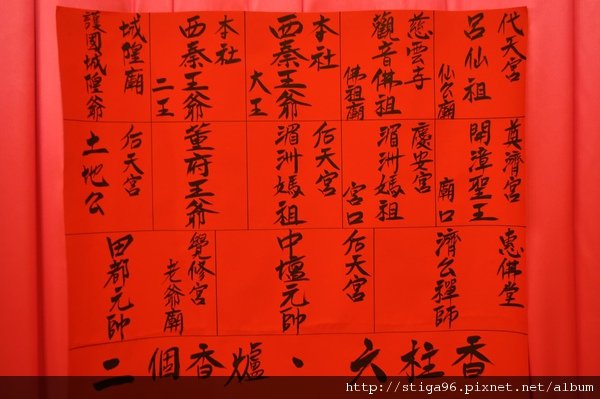 代天宮
呂仙祖
仙公廟
慈雲寺
觀音佛祖
佛祖廟
本社
西秦王爺
大王
本社
西秦王爺
二王
城隍廟
護國城隍爺
奠濟宮
開漳聖王
廟口
慶安宮
湄洲媽祖
宮口
后天宮
湄洲媽祖
董府王爺
后天宮
土地公
惠佛堂
濟公禪師
后天宮
中壇元帥
覺修宮
老爺廟
田都元帥
二個香爐、六柱香
http://stiga96.pixnet.net/album